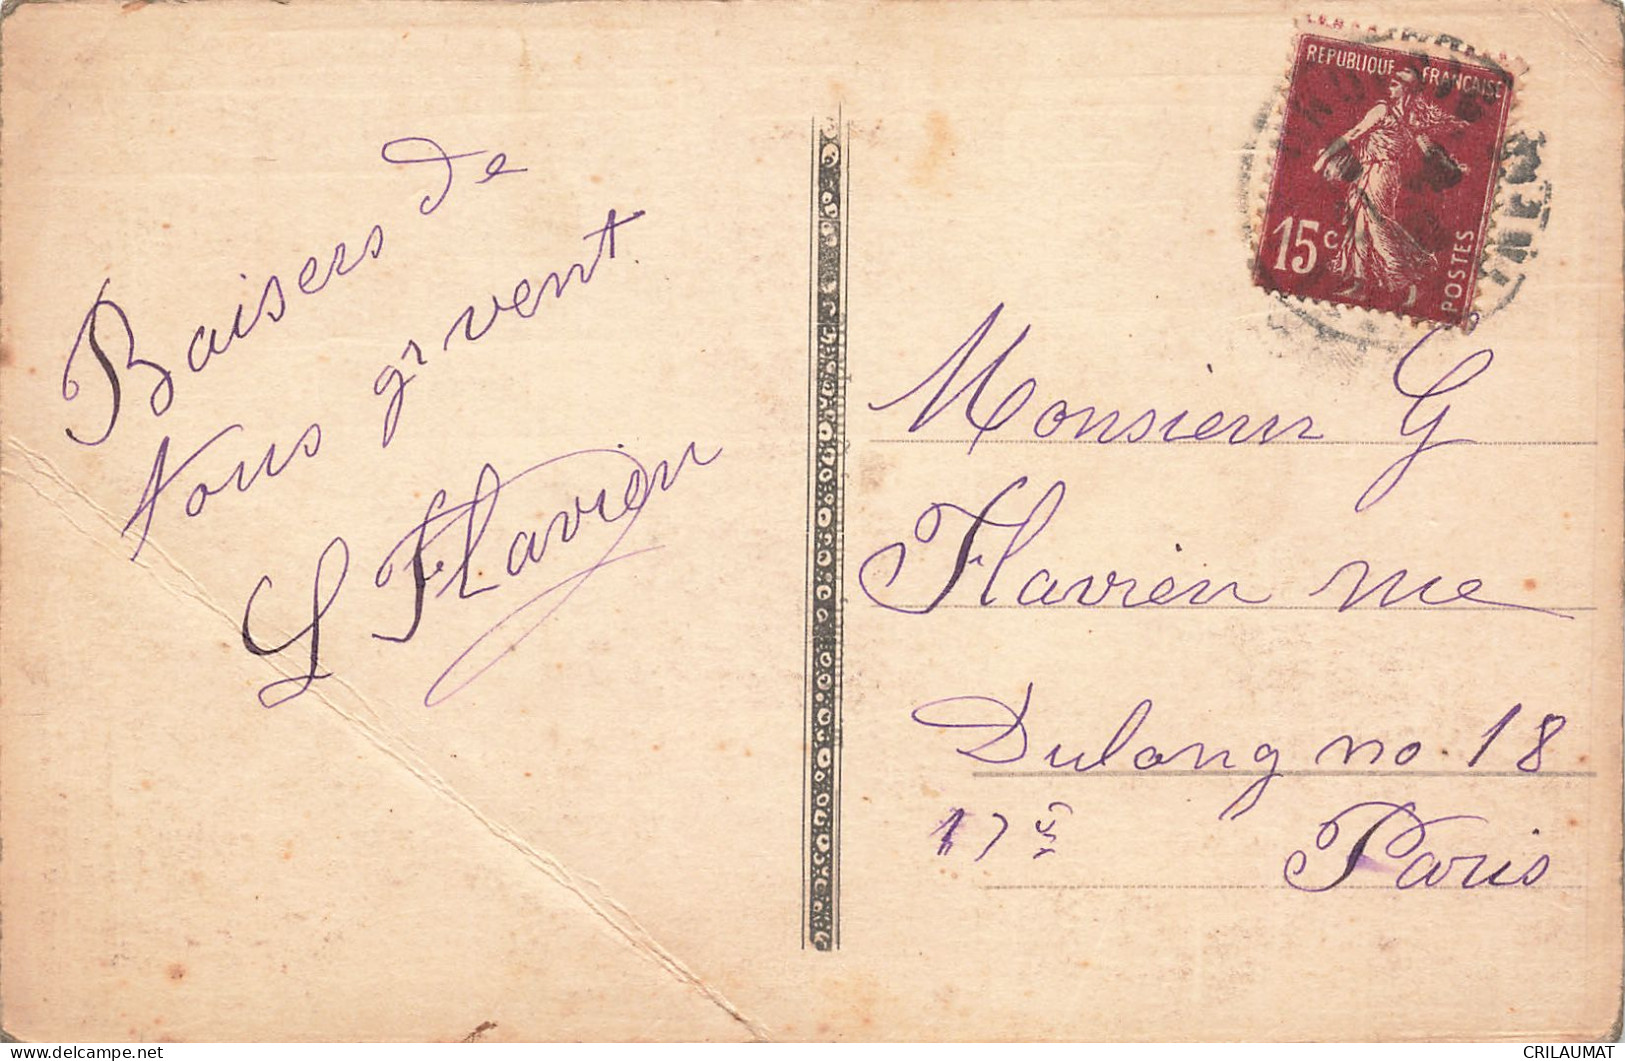 Baisers de
tous gr vent
L Flavien
REPUBLIQUE FRANCAISE
15c
POSTES
Monsieur G
Flavien rue
Dulong no 18
17e Paris
CRILAUMAT